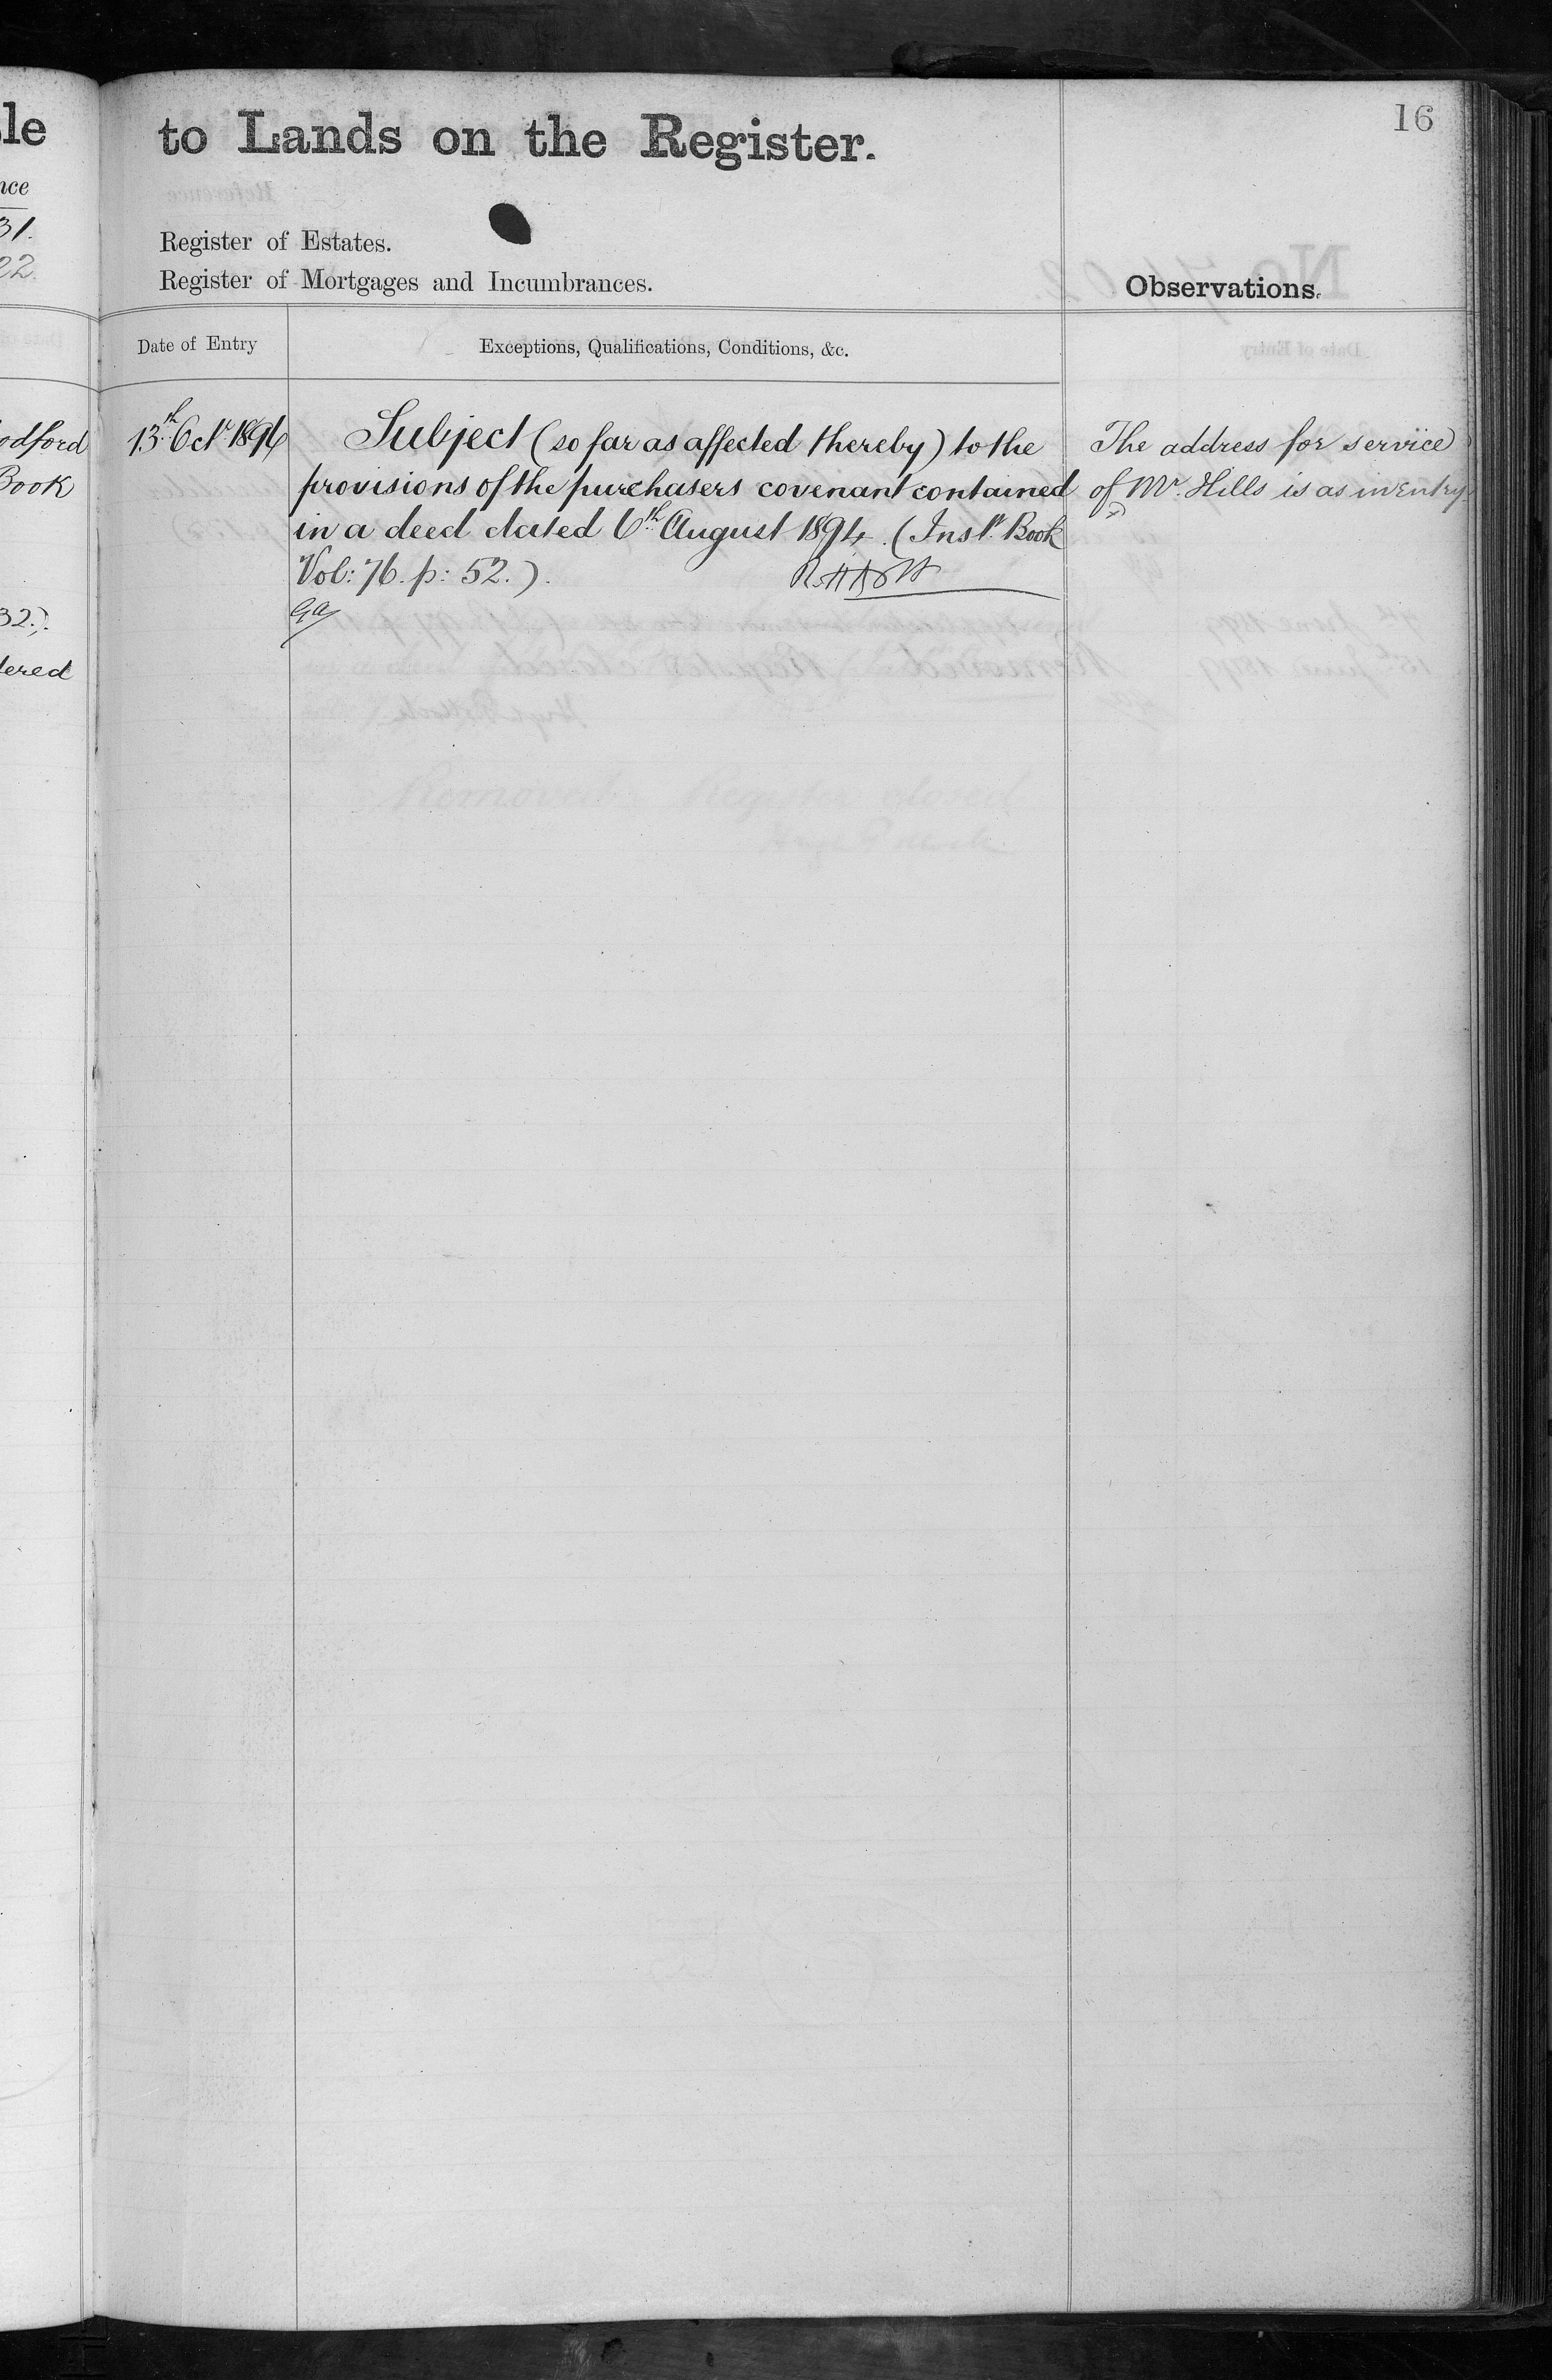 le
to Lands on the Register.
16
nce
31.
22.
Register of Estates.
Register of Mortgages and Incumbrances.
Observations.
Date of Entry
Exceptions, Qualifications, Conditions, &c.
odford
Book
32.).
dered
13th Octr 1896
Subject (so far as affected thereby) to the
provisions of the purchasers covenant contained
in a deed dated 6th August 1894. (Inst. Book
Vol: 76. p: 52.).
The address for service
of Mr. Hills is as in Entry
Removed. Register closed